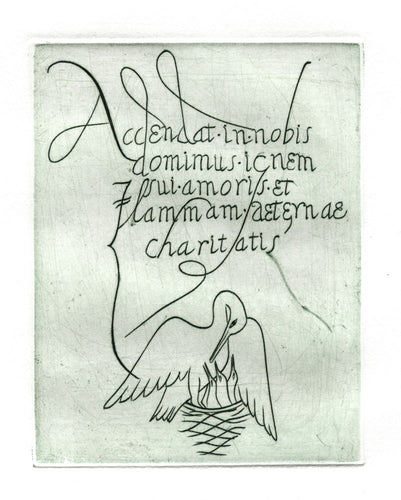 Accendat·in·nobis
domimus·ignem
sui·amoris·et
Flammam·æternæ
charitatis